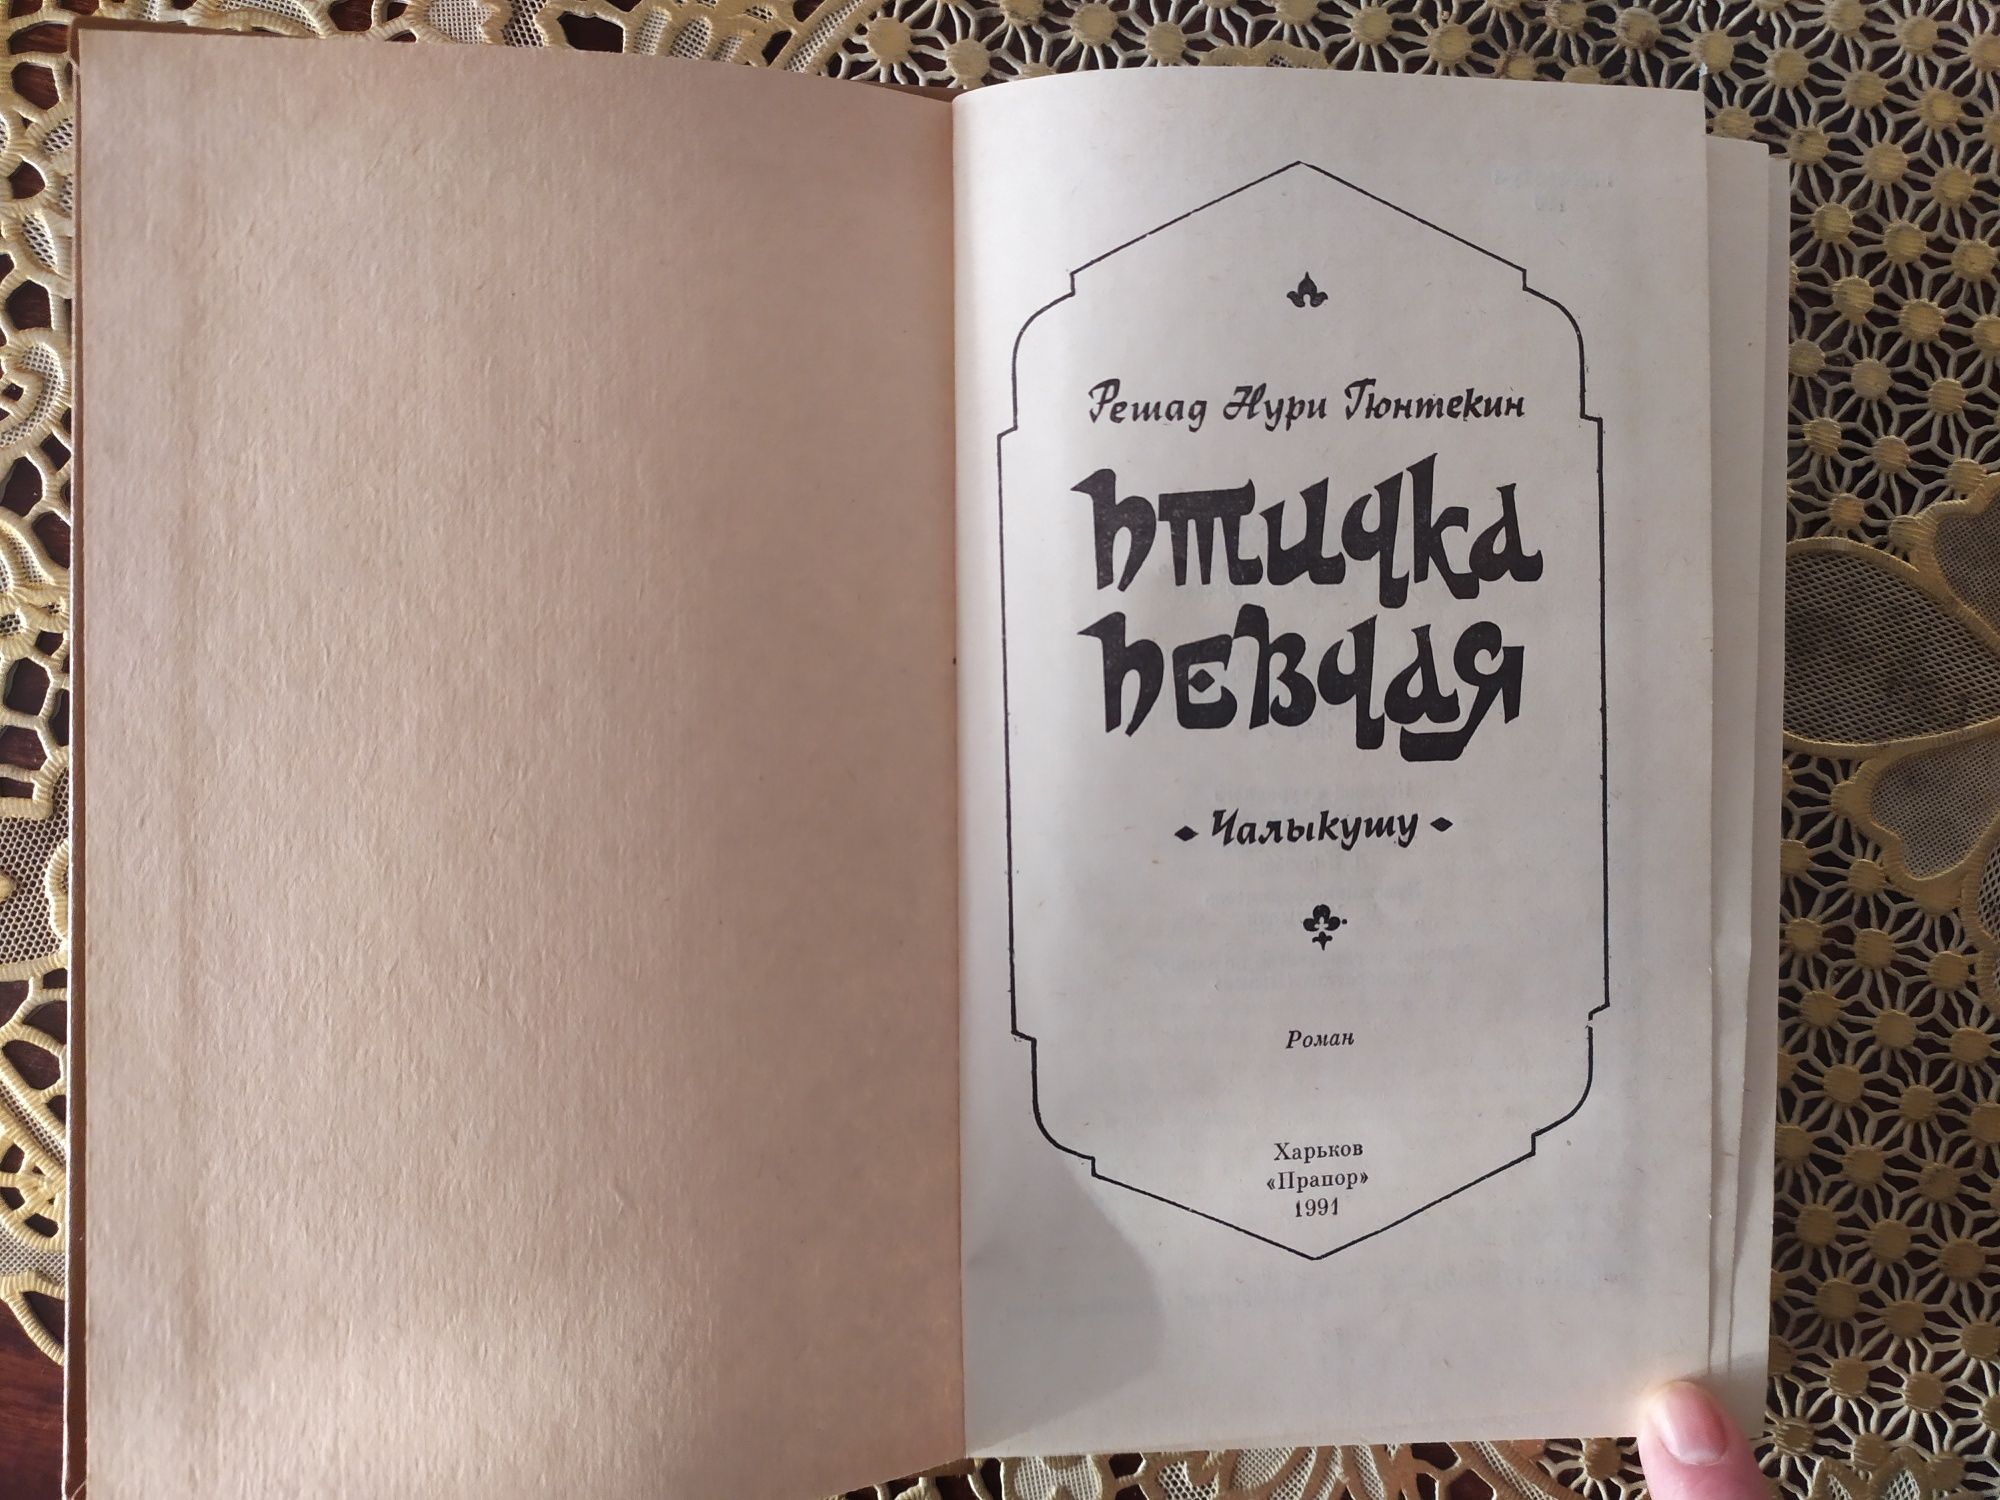 Решад Нури Гюнтекин
Птичка
певчая
Чалыкушу
Роман
Харьков
«Прапор»
1991